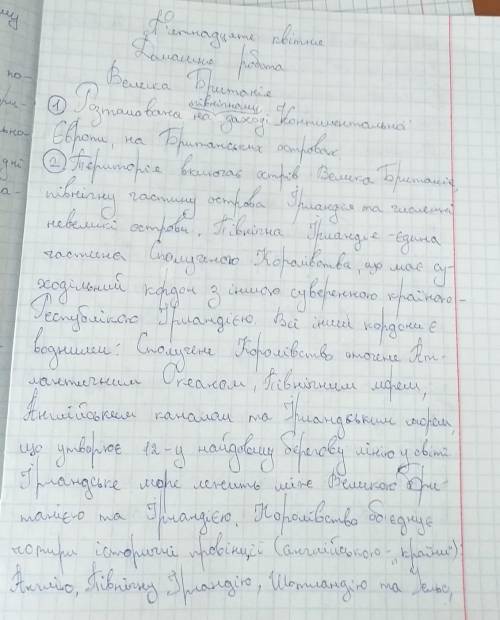 П'ятнадцяте квітня
Домашня робота
Велика Британія
1 Розташована на північному заході Континентальної
Європи, на Британських островах
2 Територія включає острів Велика Британія,
північну частину острова Ірландія та численні
невеликі острови. Північна Ірландія - єдина
частина Сполученого Королівства, що має су-
ходільний кордон з іншою суверенною країною -
Республікою Ірландією. Всі інші кордони є
водними: Сполучене Королівство оточене Ат-
лантичним Океаном, Північним морем,
Англійським каналом та Ірландським морем,
що утворює 12-у найдовшу берегову лінію у світі
Ірландське море лежить між Великою Бри-
танією та Ірландією. Королівство об'єднує
чотири історичні провінції (англійською - "країни"):
Англію, Північну Ірландію, Шотландію та Уельс,